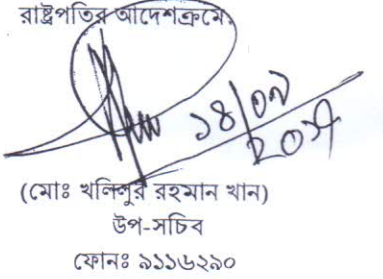 রাষ্ট্রপতির আদেশক্রমে,
১৪/০৯
(মোঃ খলিলুর রহমান খান)
উপ-সচিব
ফোনঃ ৯১১৬২৯০